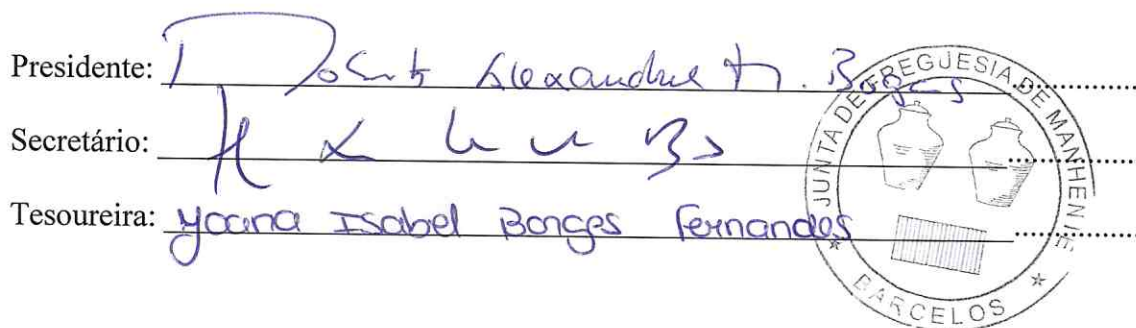 Presidente: Alexandre M. Borges
Secretário:
Tesoureira: Joana Isabel Borges Fernandes
JUNTA DE FREGUESIA DE MANHENTE
* BARCELOS *